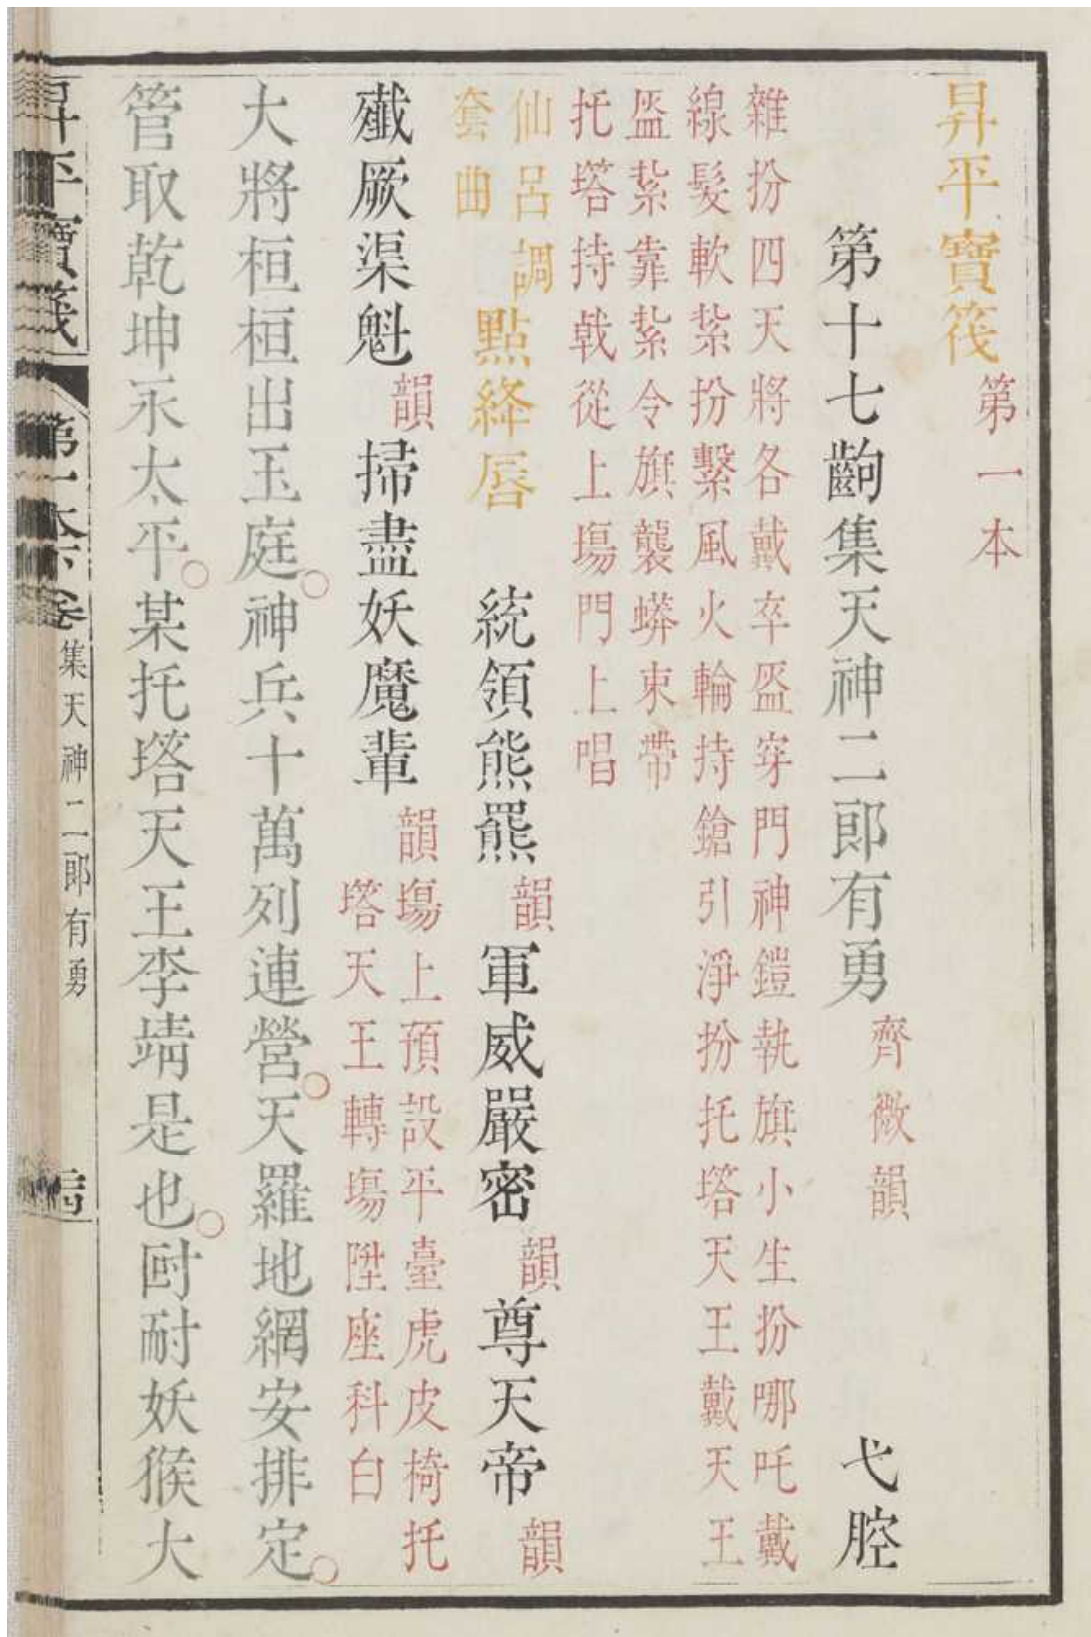 昇平寶筏第一本
第十七齣集天神二郎有勇齊微韻弋腔
雜扮四天將各戴卒盔穿門神鎧執旗小生扮哪吒戴
線髮軟紥扮繫風火輪持鎗引淨扮托塔天王戴天王
盔紥靠紥令旗襲蟒束帶
托塔持戟從上塲門上唱
仙呂調
套曲
點絳唇統領熊羆韻軍威嚴密韻尊天帝韻
殱厥渠魁韻掃盡妖魔輩韻
塲上預設平臺虎皮椅托
塔天王轉塲陞座科白
大將桓桓出玉庭○神兵十萬列連營○天羅地網安排定○
管取乾坤永太平○某托塔天王李靖是也○叵耐妖猴大
昇平寶筏
第一本下卷
集天神二郎有勇